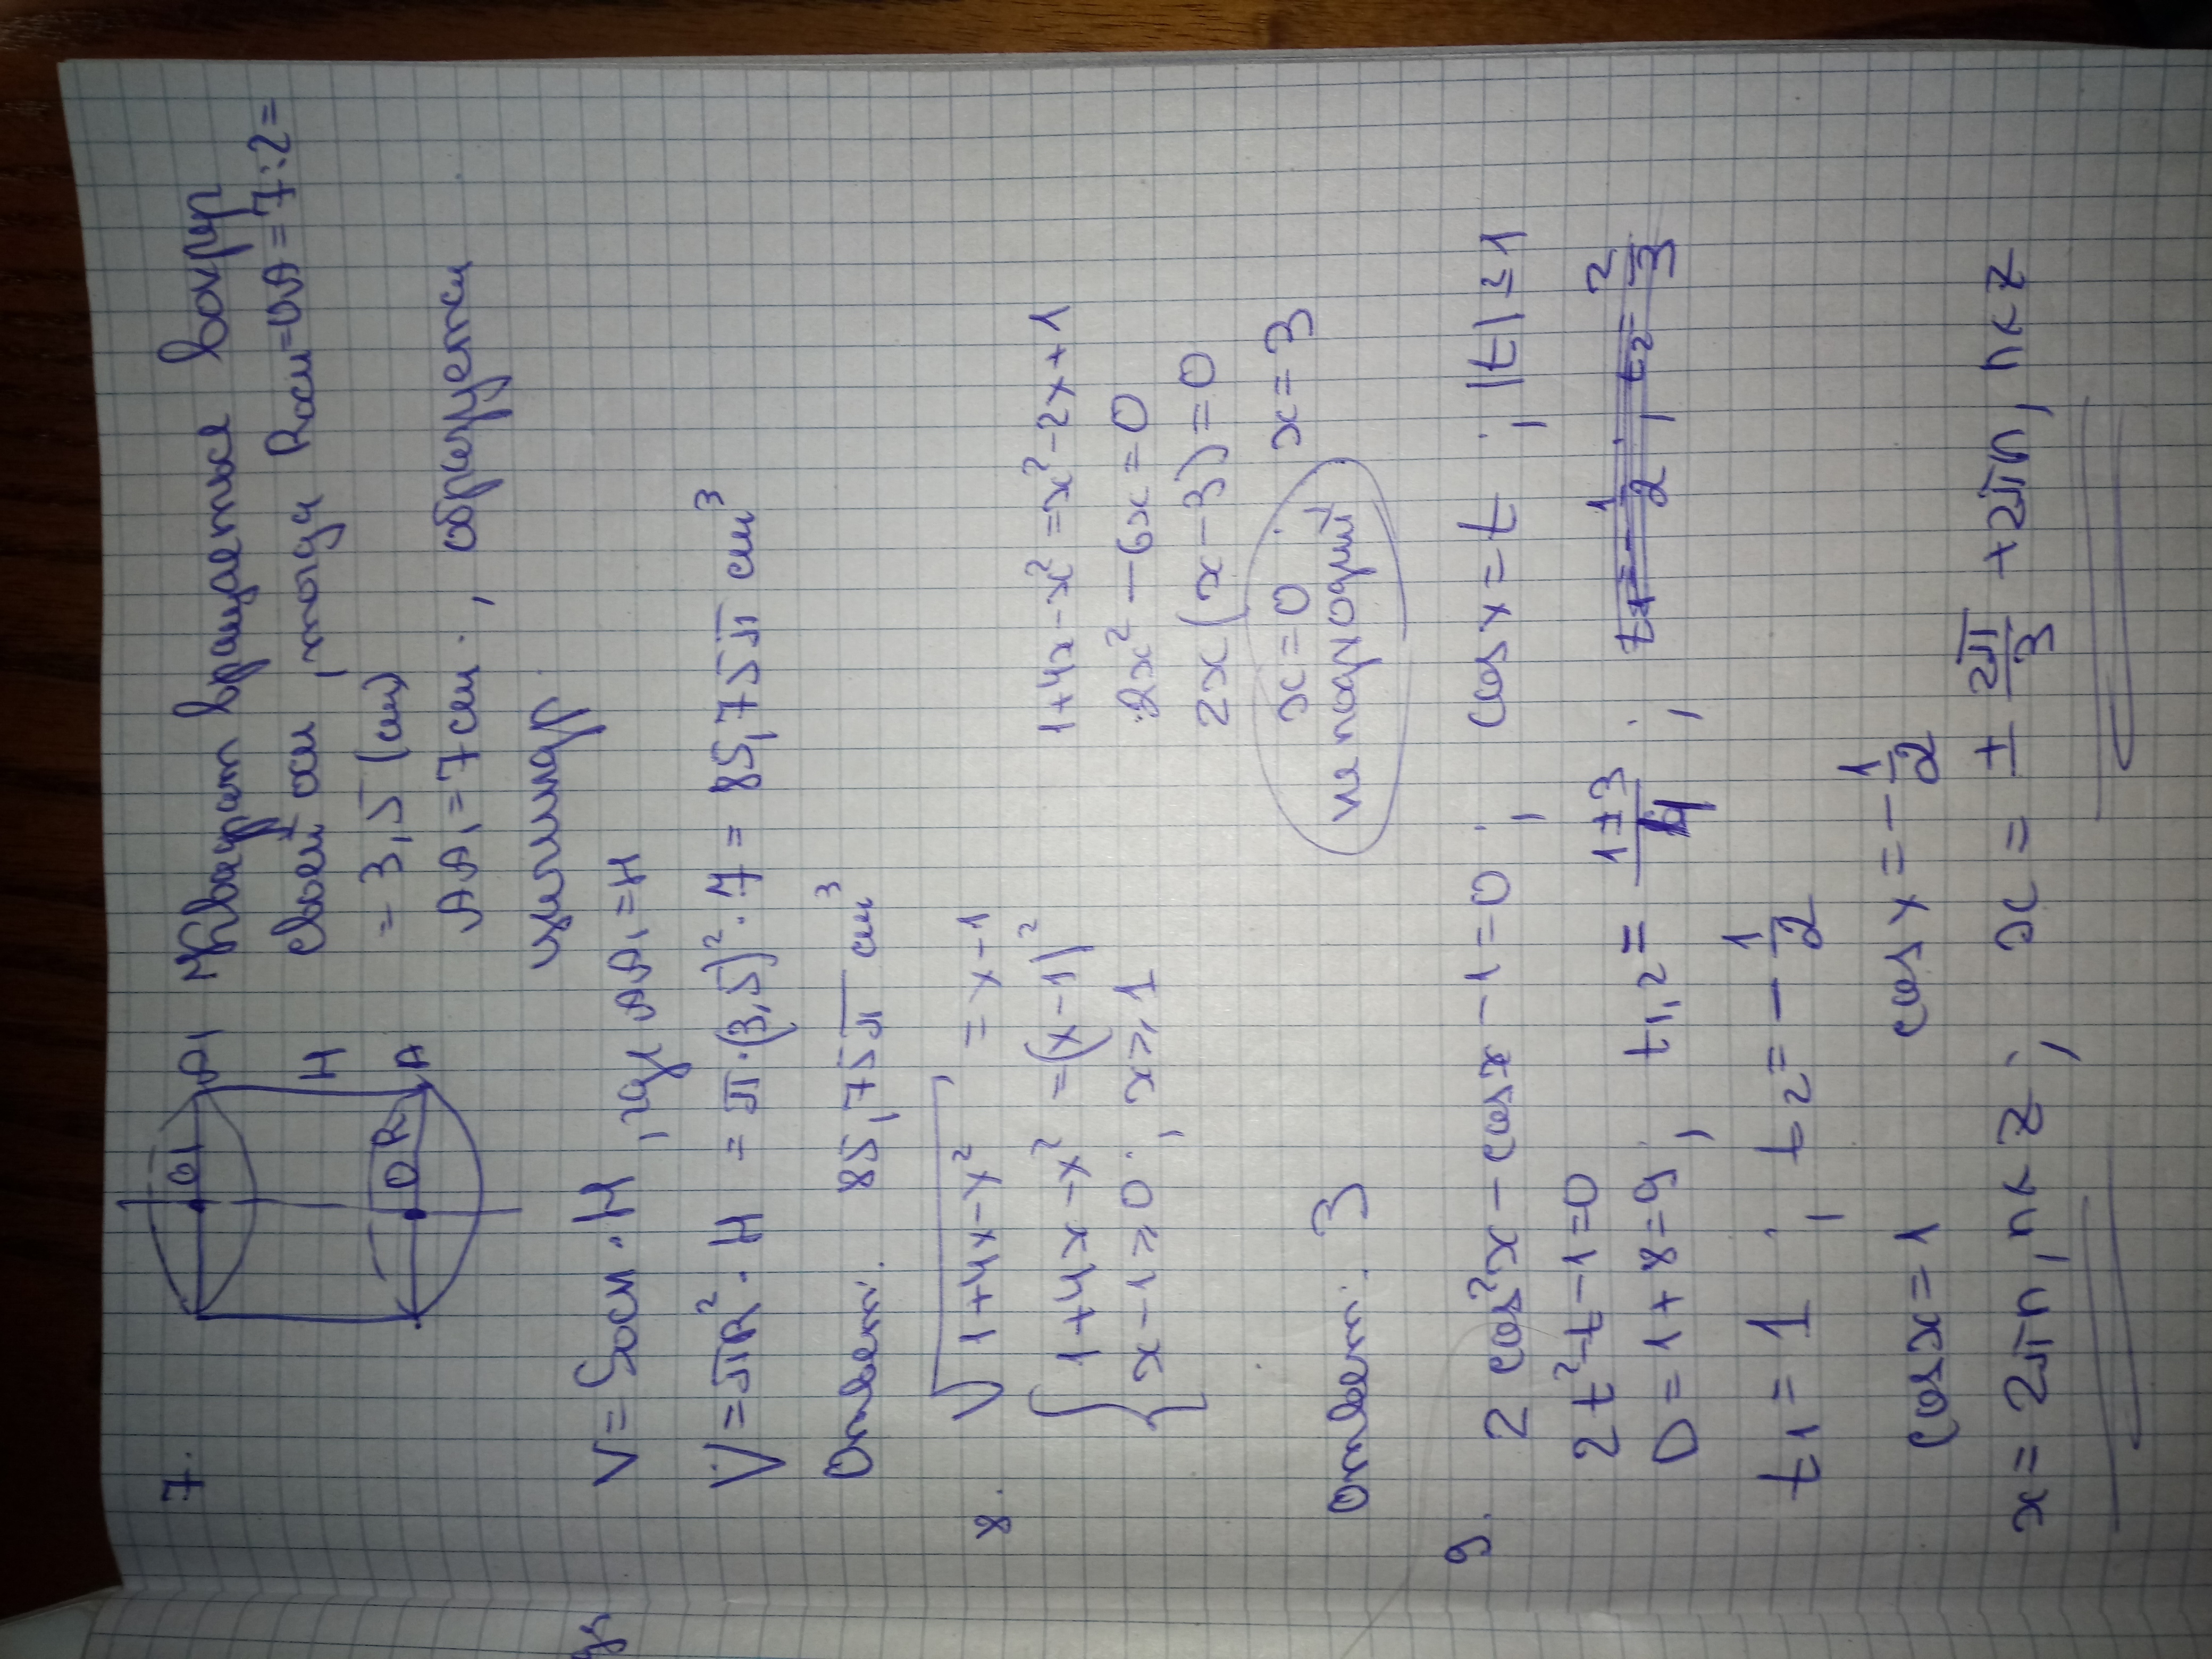 7.
O1 A1
H
O R A
Квадрат вращается вокруг
своей оси, тогда Rосн=OA=7:2=
= 3,5 (см)
AA1=7см., образуется
цилиндр.
V=Sосн·H, где AA1=H
V=πR²·H = π·(3,5)²·7 = 85,75π см³
Ответ: 85,75π см³
8. √1+4x-x² = x-1
{ 1+4x-x² =(x-1)²
x-1≥0; x≥1
1+4x-x²=x²-2x+1
2x²-6x=0
2x(x-3)=0
x=0; x=3
не подходит
Ответ: 3
9. 2cos²x-cosx-1=0; cosx=t; |t|≤1
2t²-t-1=0
D=1+8=9; t1,2= (1±3)/4; t1=-1/2, t2=2/3
t1=1; t2=-1/2
cosx=1 cosx=-1/2
x=2πn, n∈Z; x=±2π/3+2πn, n∈Z